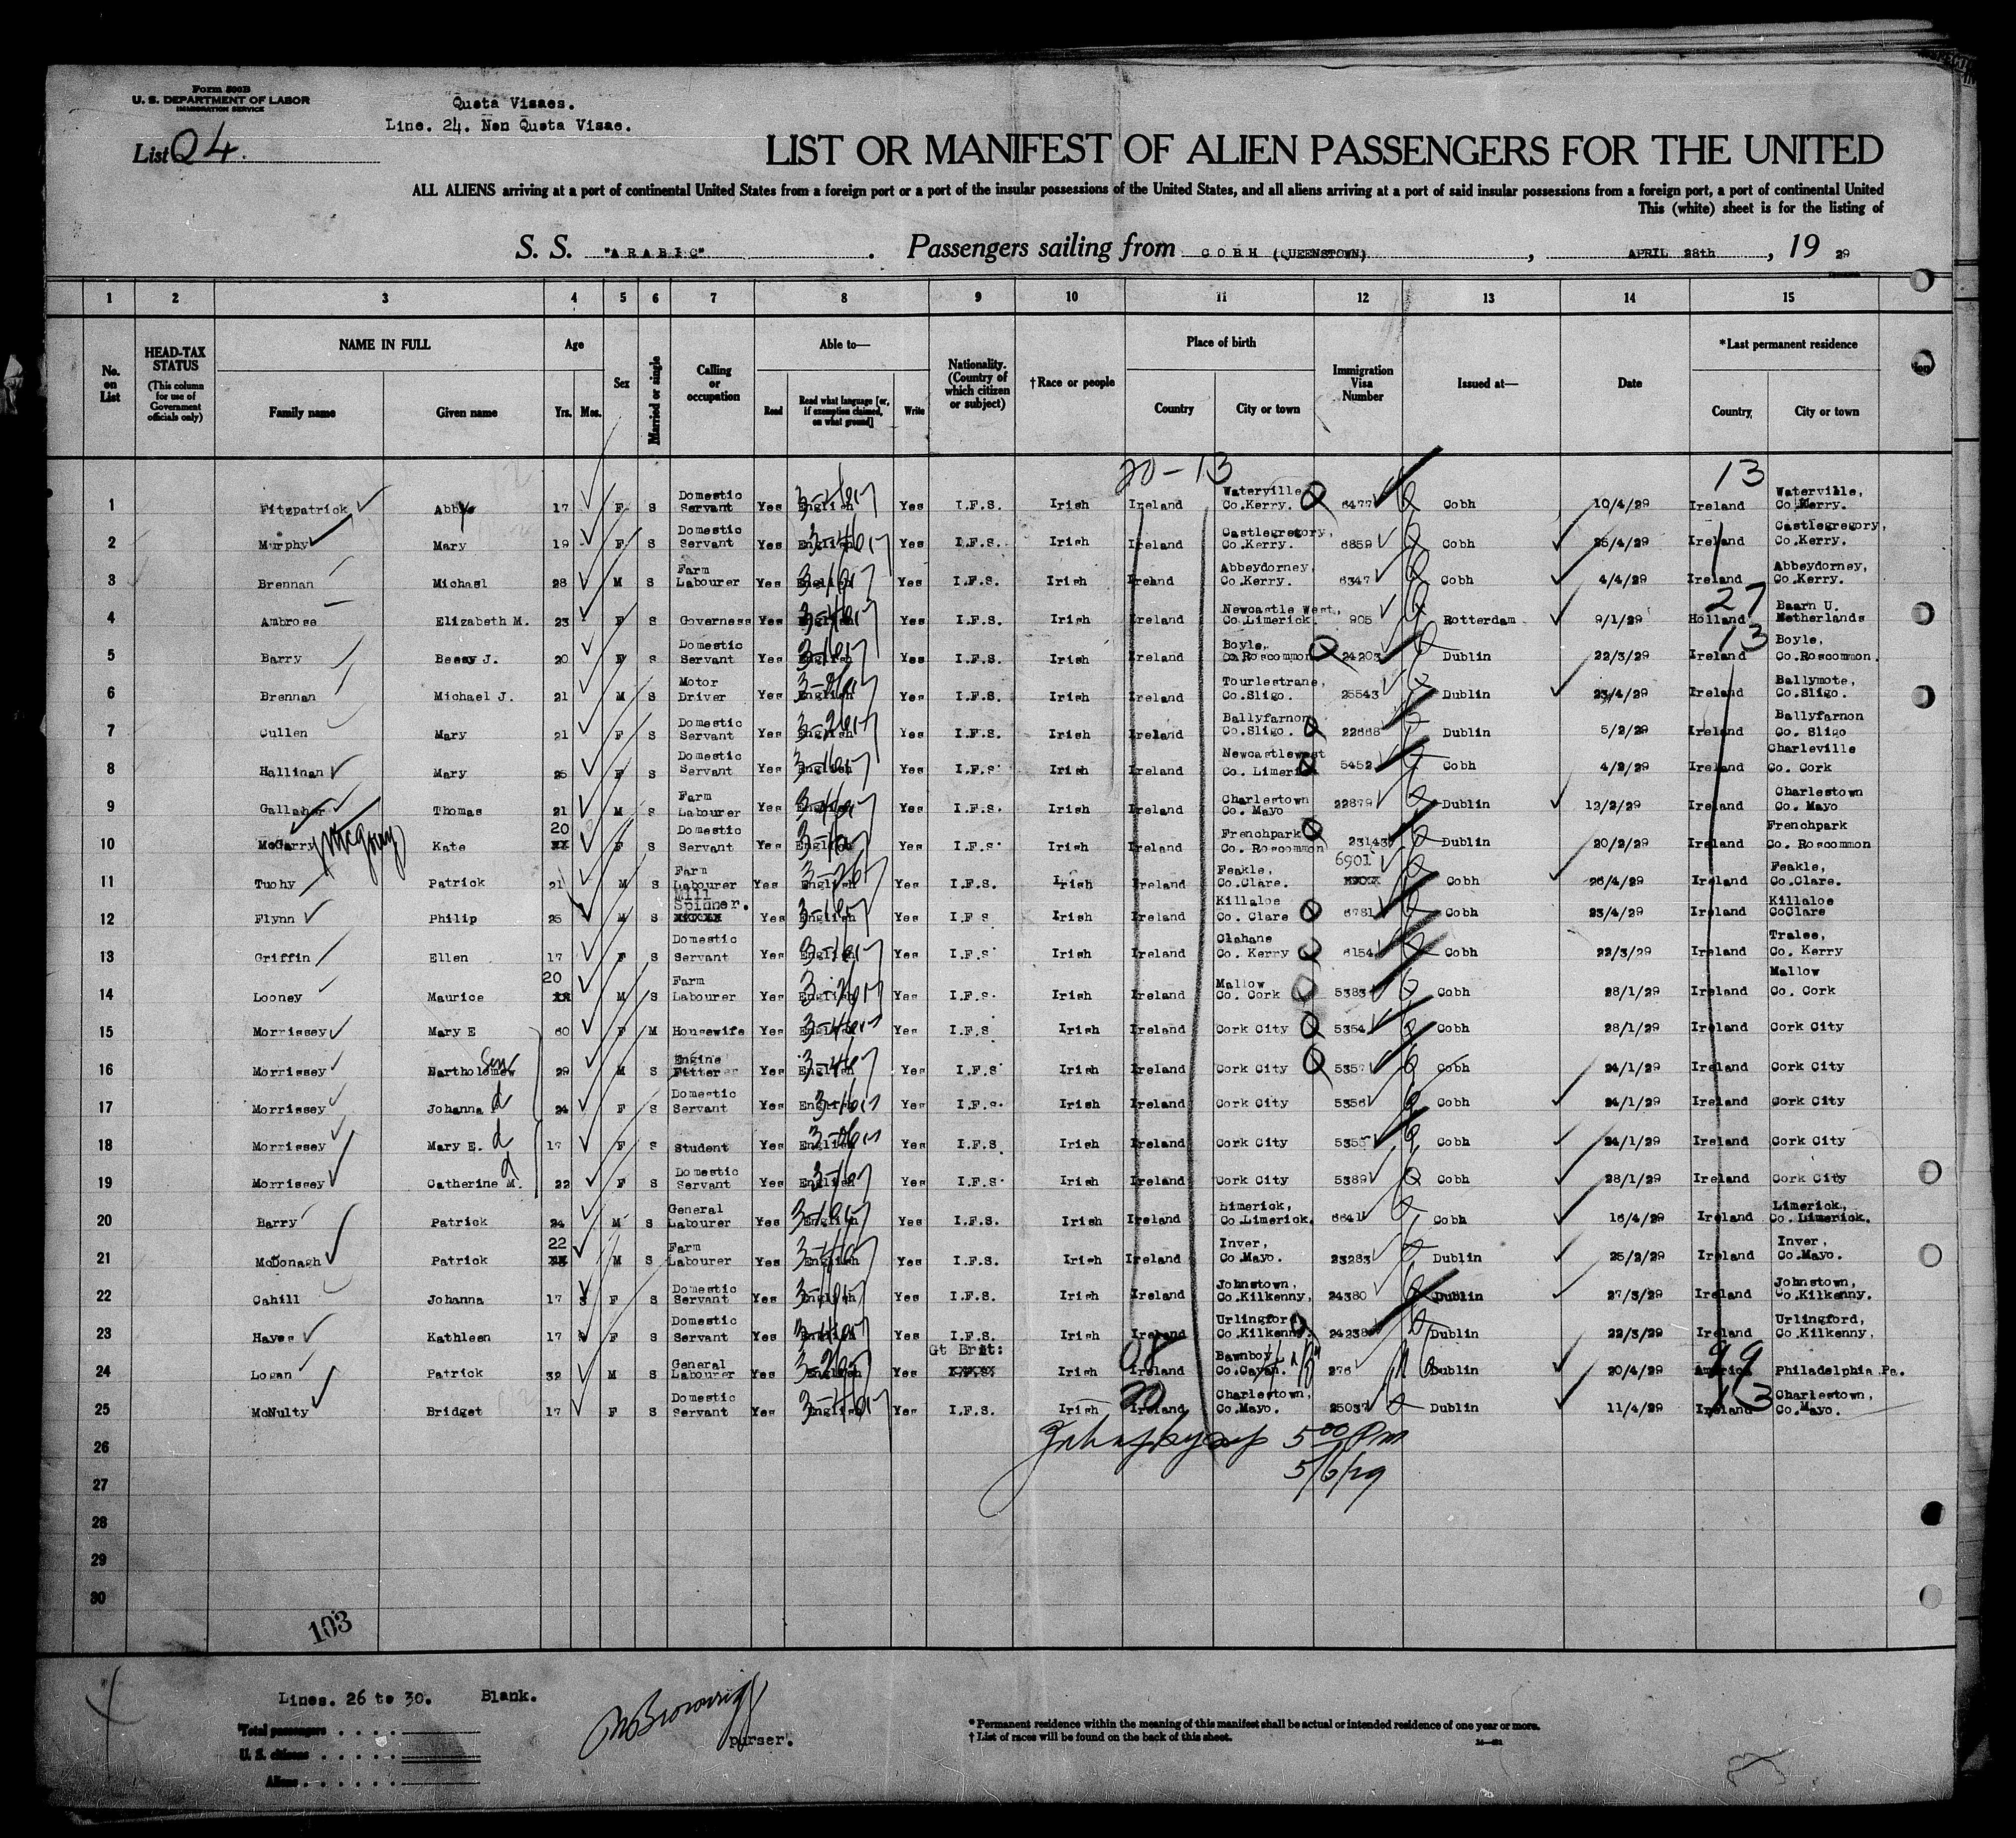 Form 500B
U. S. DEPARTMENT OF LABOR
IMMIGRATION SERVICE
Quota Visaes.
Line. 24. Non Quota Visae.
List 24.
LIST OR MANIFEST OF ALIEN PASSENGERS FOR THE UNITED
ALL ALIENS arriving at a port of continental United States from a foreign port or a port of the insular possessions of the United States, and all aliens arriving at a port of said insular possessions from a foreign port, a port of continental United
This (white) sheet is for the listing of
S. S. "ARABIC". Passengers sailing from COBH (QUEENSTOWN), APRIL 28th, 19 29
1 2 3 4 5 6 7 8 9 10 11 12 13 14 15
No. on List
HEAD-TAX STATUS (This column for use of Government officials only)
NAME IN FULL
Family name Given name
Age
Yrs. Mos.
Sex
Married or single
Calling or occupation
Able to—
Read Read what language [or, if exemption claimed, on what ground] Write
Nationality. (Country of which citizen or subject)
†Race or people
Place of birth
Country City or town
Immigration Visa Number
Issued at—
Date
*Last permanent residence
Country City or town
20-13 13
1 Fitzpatrick Abby 17 F S Domestic Servant Yes English Yes I.F.S. Irish Ireland Waterville Co.Kerry. 6477 Cobh 10/4/29 Ireland Waterville, Co.Kerry.
2 Murphy Mary 19 F S Domestic Servant Yes English Yes I.F.S. Irish Ireland Castlegregory, Co.Kerry. 6859 Cobh 25/4/29 Ireland Castlegregory, Co.Kerry.
3 Brennan Michael 28 M S Farm Labourer Yes English Yes I.F.S. Irish Ireland Abbeydorney, Co.Kerry. 6347 Cobh 4/4/29 Ireland Abbeydorney, Co.Kerry.
27
4 Ambrose Elizabeth M. 23 F S Governess Yes English Yes I.F.S. Irish Ireland Newcastle West, Co.Limerick. 905 Rotterdam 9/1/29 Holland Baarn U. Netherlands
13
5 Barry Bessy J. 20 F S Domestic Servant Yes English Yes I.F.S. Irish Ireland Boyle, Co.Roscommon 24203 Dublin 22/3/29 Ireland Boyle, Co.Roscommon.
6 Brennan Michael J. 21 M S Motor Driver Yes English Yes I.F.S. Irish Ireland Tourlestrane, Co.Sligo. 25543 Dublin 23/4/29 Ireland Ballymote, Co.Sligo.
7 Cullen Mary 21 F S Domestic Servant Yes English Yes I.F.S. Irish Ireland Ballyfarnon Co.Sligo. 22668 Dublin 5/2/29 Ireland Ballyfarnon Co. Sligo
8 Hallinan Mary 25 F S Domestic Servant Yes English Yes I.F.S. Irish Ireland Newcastlewest Co. Limerick 5452 Cobh 4/2/29 Ireland Charleville Co. Cork
9 Gallaher Thomas 21 M S Farm Labourer Yes English Yes I.F.S. Irish Ireland Charlestown Co. Mayo 22879 Dublin 12/2/29 Ireland Charlestown Co. Mayo
10 McGarry Kate 20 F S Domestic Servant Yes English Yes I.F.S. Irish Ireland Frenchpark Co. Roscommon 23143 Dublin 20/2/29 Ireland Frenchpark Co. Roscommon
11 Tuohy Patrick 21 M S Farm Labourer Yes English Yes I.F.S. Irish Ireland Feakle, Co.Clare. 6901 Cobh 26/4/29 Ireland Feakle, Co.Clare.
12 Flynn Philip 25 M S Mill Spinner. Yes English Yes I.F.S Irish Ireland Killaloe Co. Clare 6781 Cobh 23/4/29 Ireland Killaloe CoClare
13 Griffin Ellen 17 F S Domestic Servant Yes English Yes I.F.S Irish Ireland Clahane Co. Kerry 6154 Cobh 22/3/29 Ireland Tralee, Co. Kerry
14 Looney Maurice 20 M S Farm Labourer Yes English Yes I.F.S. Irish Ireland Mallow Co. Cork 5383 Cobh 28/1/29 Ireland Mallow Co. Cork
15 Morrissey Mary E 60 F M Housewife Yes English Yes I.F.S Irish Ireland Cork City 5354 Cobh 28/1/29 Ireland Cork City
16 Morrissey Bartholomew Son 29 M S Engine Fitter Yes English Yes I.F.S Irish Ireland Cork City 5357 Cobh 24/1/29 Ireland Cork City
17 Morrissey Johanna d 24 F S Domestic Servant Yes English Yes I.F.S. Irish Ireland Cork City 5356 Cobh 24/1/29 Ireland Cork City
18 Morrissey Mary E. d 17 F S Student Yes English Yes I.F.S. Irish Ireland Cork City 5355 Cobh 24/1/29 Ireland Cork City
19 Morrissey Catherine M. d 22 F S Domestic Servant Yes English Yes I.F.S. Irish Ireland Cork City 5389 Cobh 28/1/29 Ireland Cork City
20 Barry Patrick 24 M S General Labourer Yes English Yes I.F.S. Irish Ireland Limerick, Co.Limerick. 6641 Cobh 16/4/29 Ireland Limerick, Co.Limerick.
21 McDonagh Patrick 22 M S Farm Labourer Yes English Yes I.F.S. Irish Ireland Inver, Co.Mayo. 23283 Dublin 25/2/29 Ireland Inver, Co.Mayo.
22 Cahill Johanna 17 F S Domestic Servant Yes English Yes I.F.S. Irish Ireland Johnstown, Co.Kilkenny. 24380 Dublin 27/3/29 Ireland Johnstown, Co.Kilkenny.
23 Hayes Kathleen 17 F S Domestic Servant Yes English Yes I.F.S. Irish Ireland Urlingford Co.Kilkenny. 24238 Dublin 22/3/29 Ireland Urlingford, Co.Kilkenny.
24 Logan Patrick 32 M S General Labourer Yes English Yes Gt Brit: Irish Ireland Bawnboy Co.Cavan. 276 Dublin 20/4/29 America 99 Philadelphia Pa.
25 McNulty Bridget 17 F S Domestic Servant Yes English Yes I.F.S. Irish 20 Ireland Charlestown, Co.Mayo. 25037 Dublin 11/4/29 Ireland 13 Charlestown, Co.Mayo.
26 5 00 Pm
27 5/6/29
28
29
30
103
Lines. 26 to 30. Blank.
Total passengers
U. S. citizens
Aliens
purser.
* Permanent residence within the meaning of this manifest shall be actual or intended residence of one year or more.
† List of races will be found on the back of this sheet.